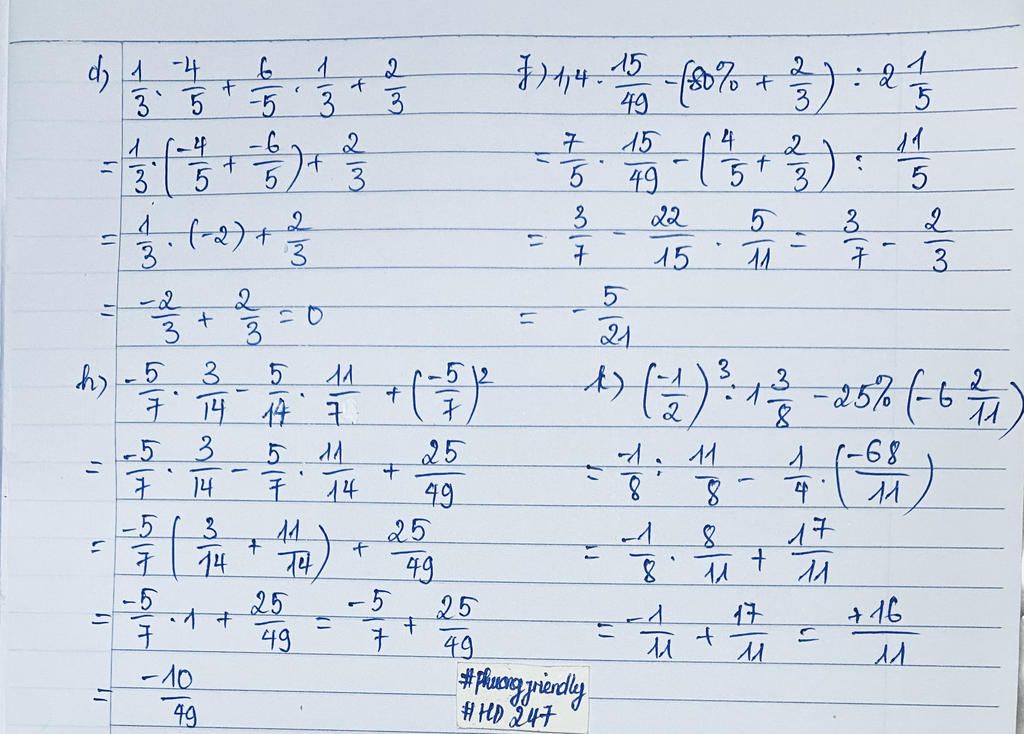 d) 1/3 . -4/5 + 6/-5 . 1/3 + 2/3
= 1/3 . (-4/5 + -6/5) + 2/3
= 1/3 . (-2) + 2/3
= -2/3 + 2/3 = 0
f) 1,4 . 15/49 - (80% + 2/3) : 2 1/5
= 7/5 . 15/49 - (4/5 + 2/3) : 11/5
= 3/7 - 22/15 . 5/11 = 3/7 - 2/3
= - 5/21
h) -5/7 . 3/14 - 5/14 . 11/7 + (-5/7)²
= -5/7 . 3/14 - 5/7 . 11/14 + 25/49
= -5/7 (3/14 + 11/14) + 25/49
= -5/7 . 1 + 25/49 = -5/7 + 25/49
= -10/49
k) (-1/2)³ : 1 3/8 - 25% (-6 2/11)
= -1/8 : 11/8 - 1/4 . (-68/11)
= -1/8 . 8/11 + 17/11
= -1/11 + 17/11 = +16/11
#phuongfriendly
#HD 247